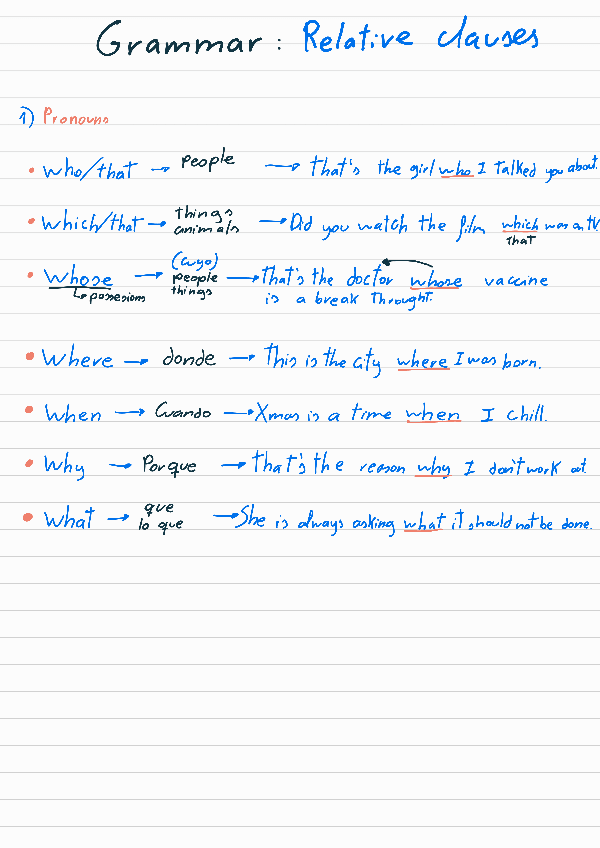 Grammar: Relative clauses
1) Pronouns
• Who/that → people → That's the girl who I talked you about.
• Which/that → things animals → Did you watch the film which was on TV
that
• Whose → (cuyo) people things → That's the doctor whose vaccine
↳ possesions is a break throught.
• Where → donde → This is the city where I was born.
• When → Cuando → Xmas is a time when I chill.
• Why → Porque → That's the reason why I don't work out.
• What → que lo que → She is always asking what it should not be done.